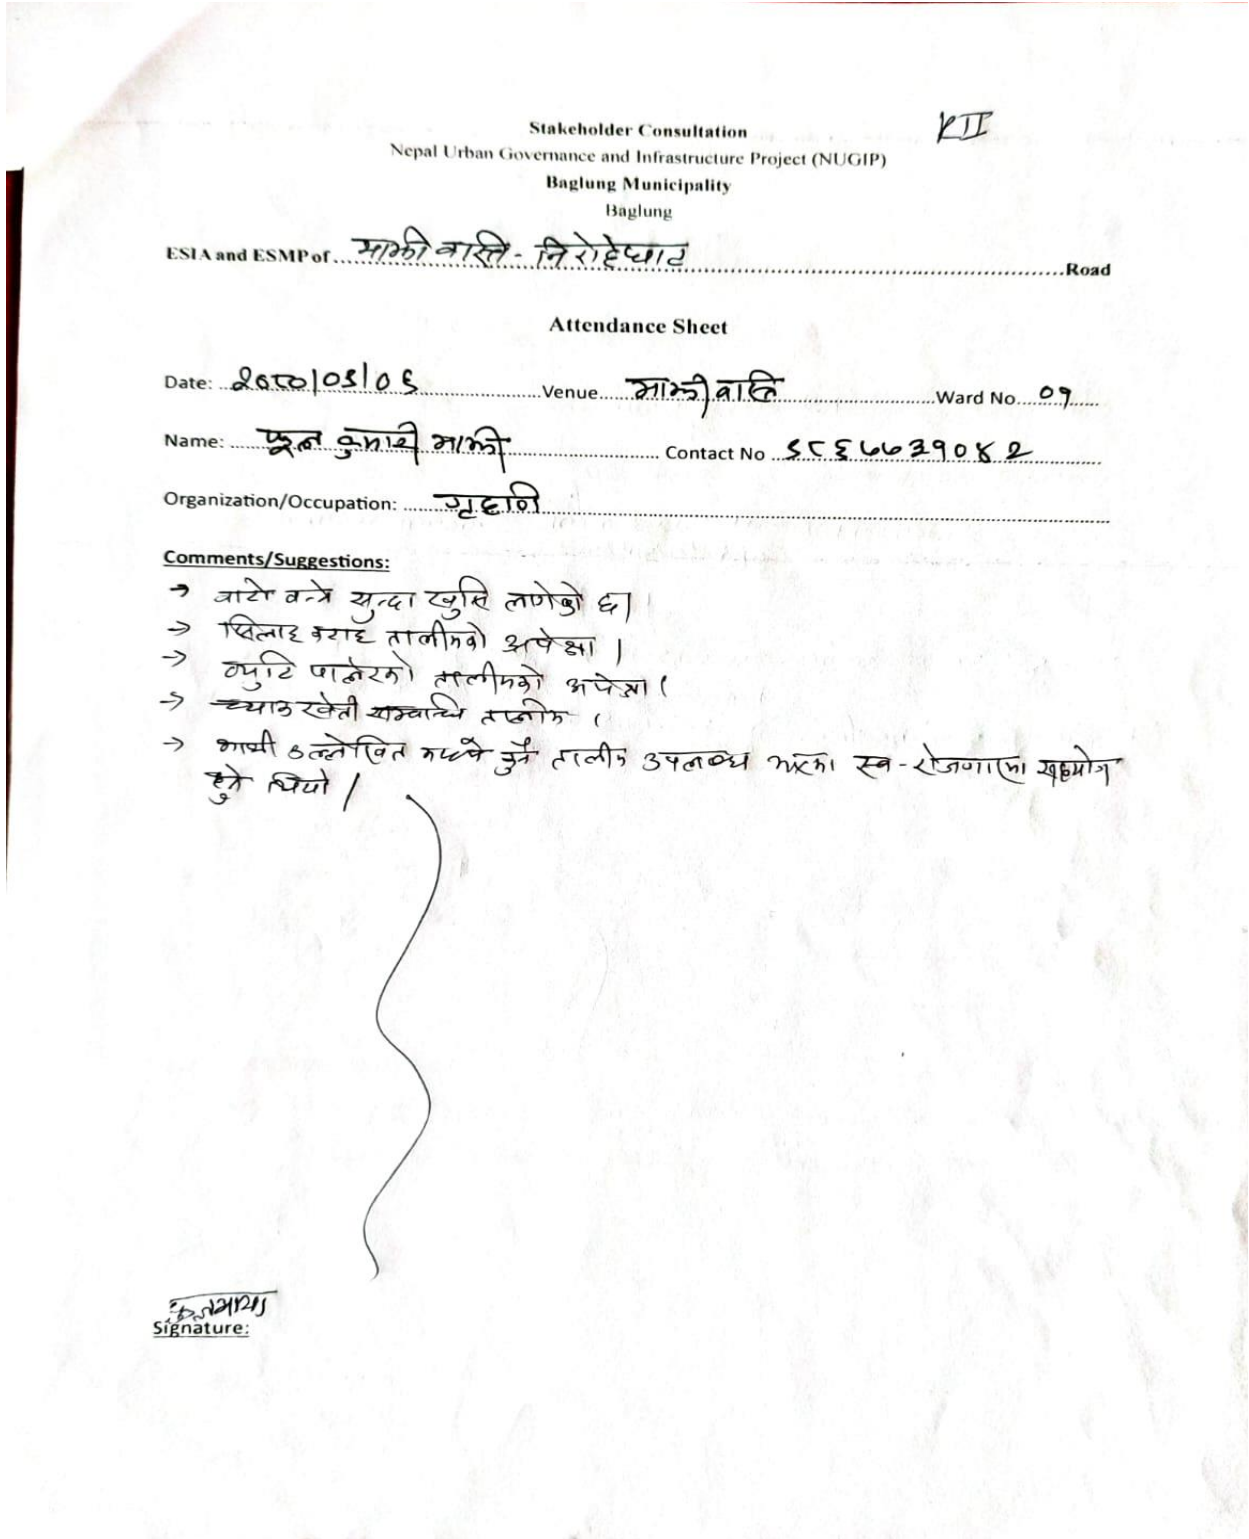 KII
Stakeholder Consultation
Nepal Urban Governance and Infrastructure Project (NUGIP)
Baglung Municipality
Baglung
ESIA and ESMP of माझी वास्ति - निरोहेघाट Road
Attendance Sheet
Date: २०८०/०९/०६ Venue माझी वास्ति Ward No ०१
Name: फूल कुमारी माझी Contact No ९८६७७३१०४२
Organization/Occupation: गृहणी
Comments/Suggestions:
→ वाटो वन्ने सुन्दा खुसि लागेको छ।
→ सिलाइ कटाइ तालीमको अपेक्षा ।
→ व्युटि पार्लरको तालीमको अपेक्षा ।
→ च्याऊ खेती सम्वान्धि तालीम ।
→ माथी उल्लेखित मध्ये कुनै तालीम उपलब्ध भएमा स्व-रोजगारमा सहयोग
हुने थियो ।
फुलमाया
Signature: